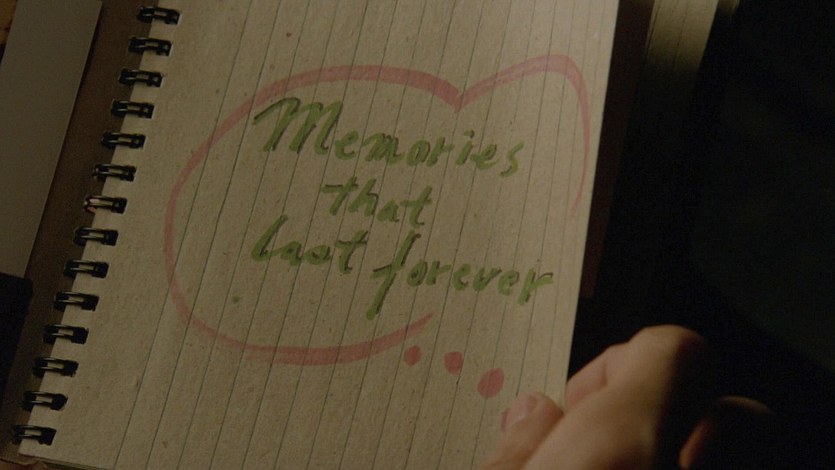 Memories
that
last forever